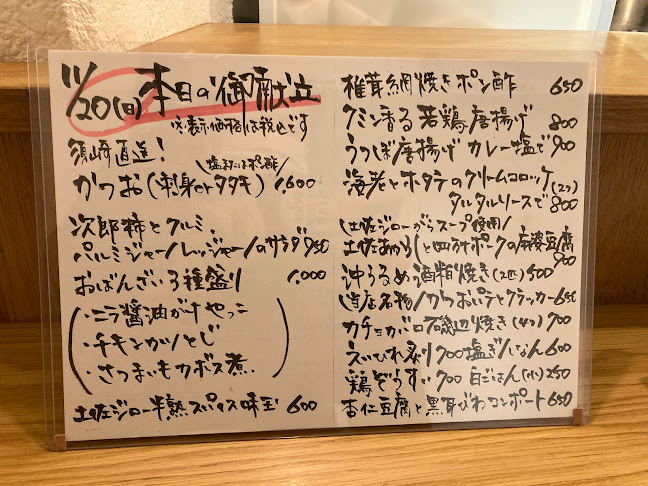 11/20(日)本日の御献立
※表示価格は税込です
須崎直送!
塩またはポン酢
かつお(刺身orタタキ) 1,600
次郎柿とクルミ、
パルミジャーノレッジャーノのサラダ 950
おばんざい3種盛り 1,000
・ニラ醤油がけやっこ
・チキンカツとじ
・さつまいもカボス煮
土佐ジロー半熟スパイス味玉 600
椎茸網焼きポン酢 650
クミン香る若鶏唐揚げ 800
うつぼ唐揚げ カレー塩で 900
海老とホタテのクリームコロッケ(2コ)
タルタルソースで 800
\土佐ジローがらスープ使用/
土佐あかうしと四万十ポークの麻婆豆腐 900
沖うるめ酒粕焼き(2匹) 500
\当店名物/かつおパテとクラッカー 650
カチョカバロ磯辺焼き(4コ) 700
えいひれ炙り 700 塩ぎんなん 600
鶏ぞうすい 700 白ごはん(小) 250
杏仁豆腐と黒耳びわコンポート 650